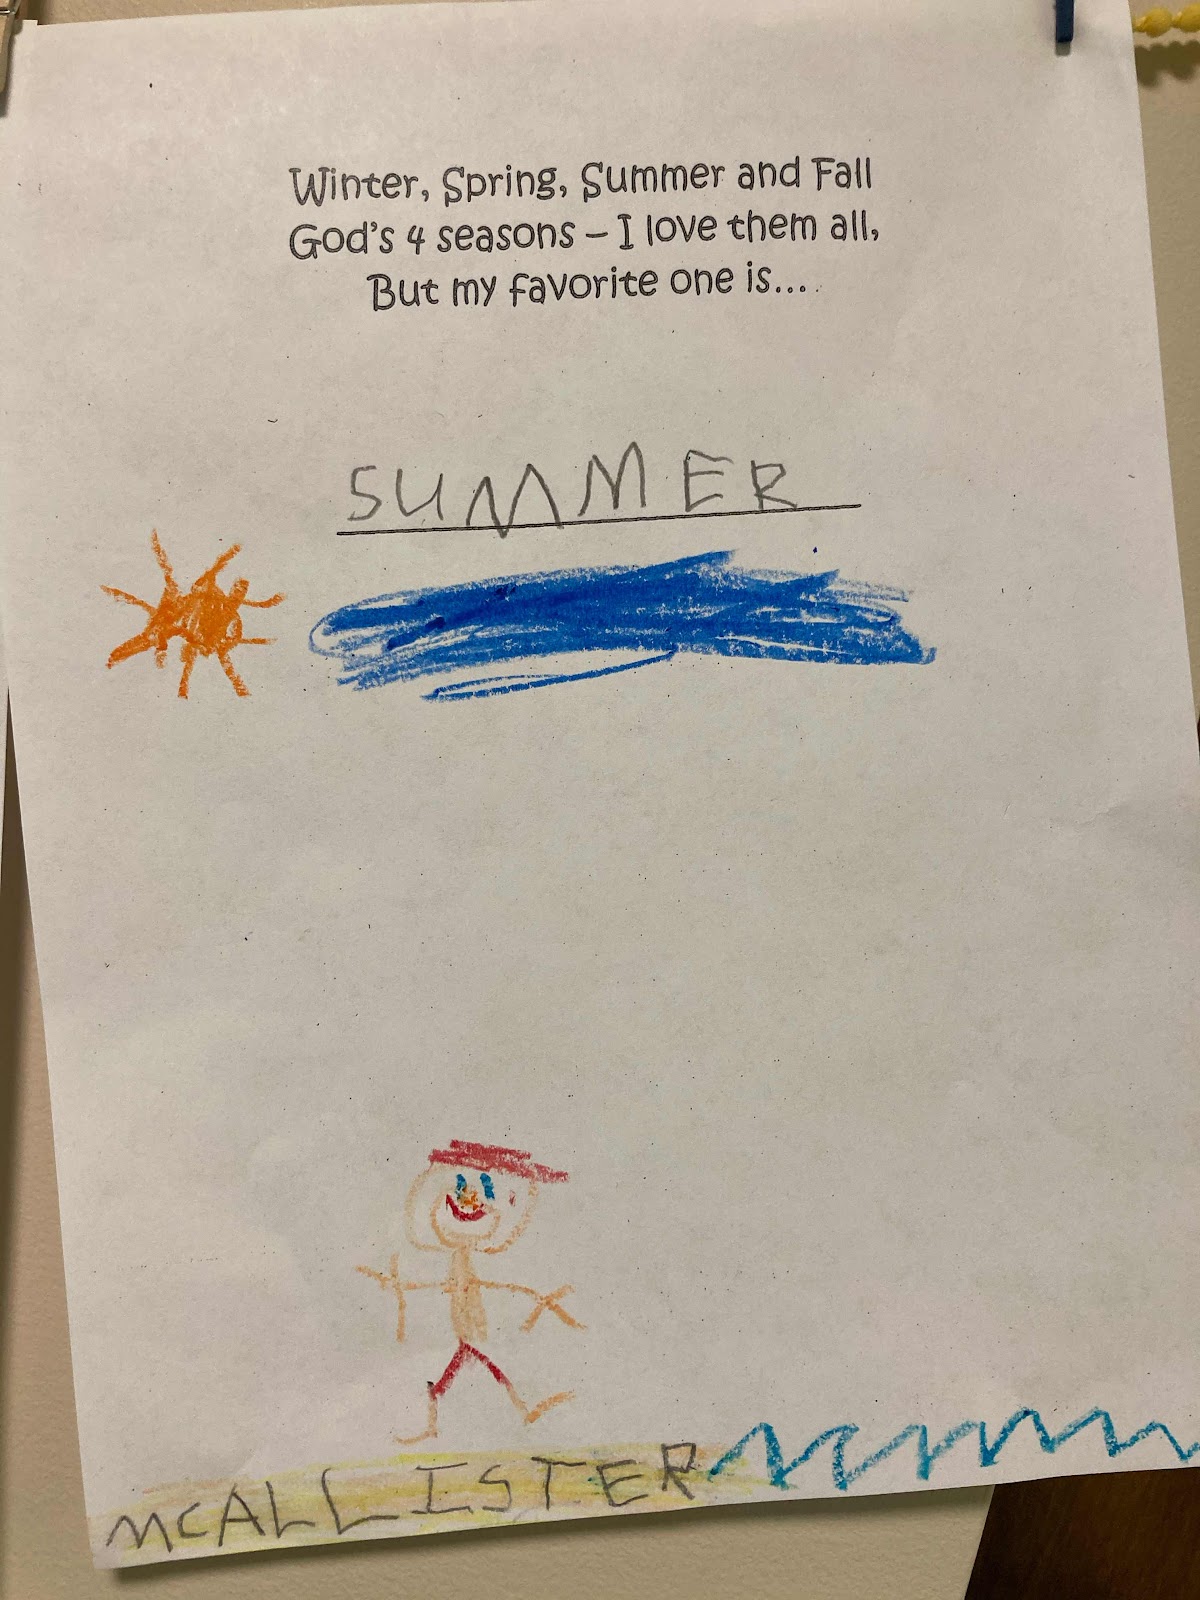 Winter, Spring, Summer and Fall
God's 4 seasons – I love them all,
But my favorite one is...
SUMMER
McALLISTER